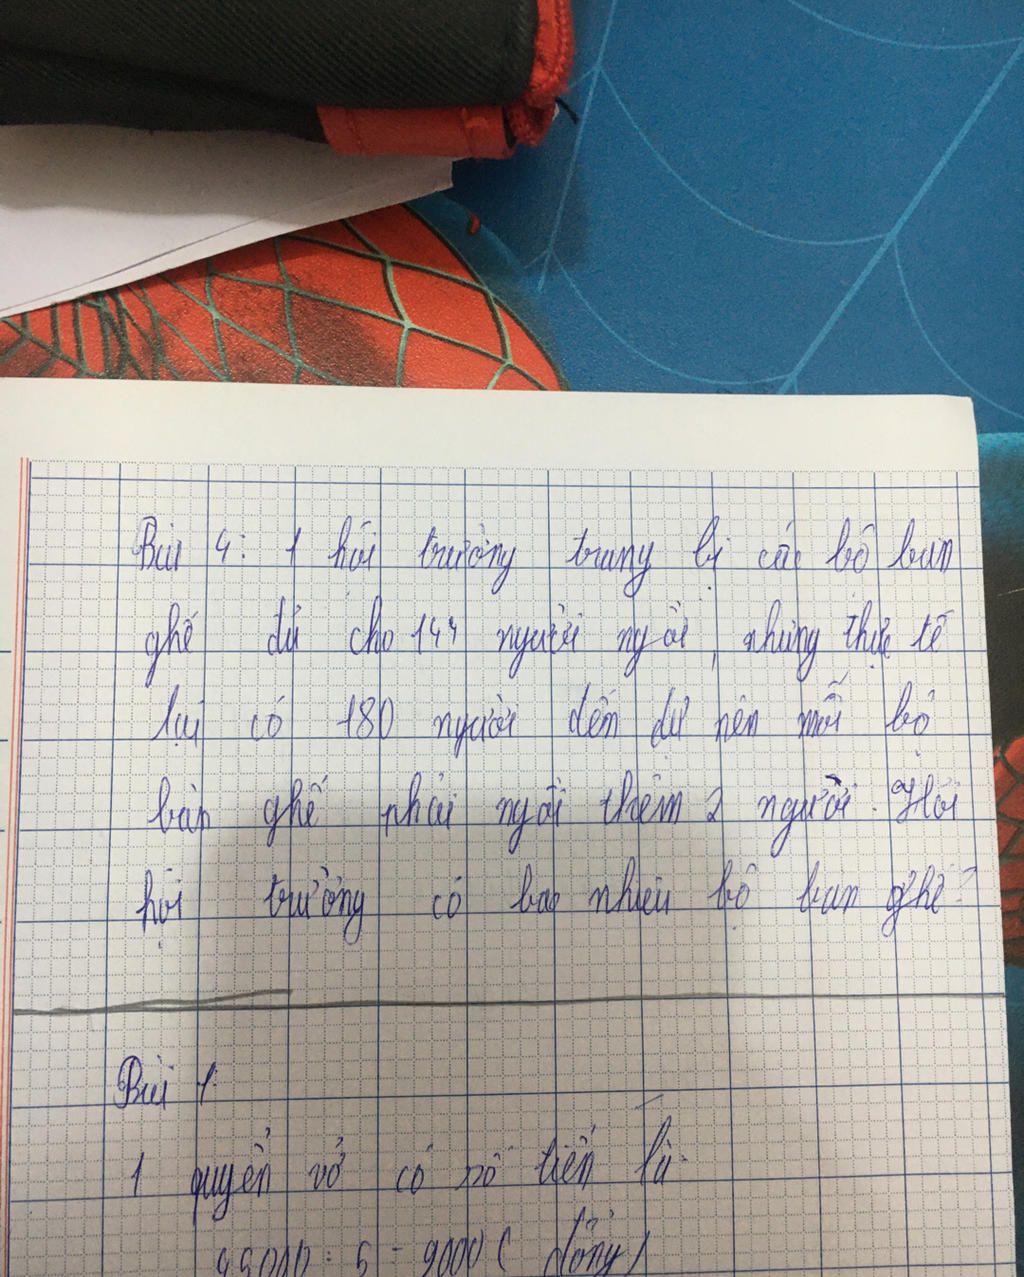 Bài 4: 1 hội trường trang bị các bộ bàn
ghế đủ cho 144 người ngồi, nhưng thực tế
lại có 180 người đến dự nên mỗi bộ
bàn ghế phải ngồi thêm 2 người. Hỏi
hội trường có bao nhiêu bộ bàn ghế?
Bài 1:
1 quyển vở có số tiền là:
45000 : 5 = 9000 ( đồng )